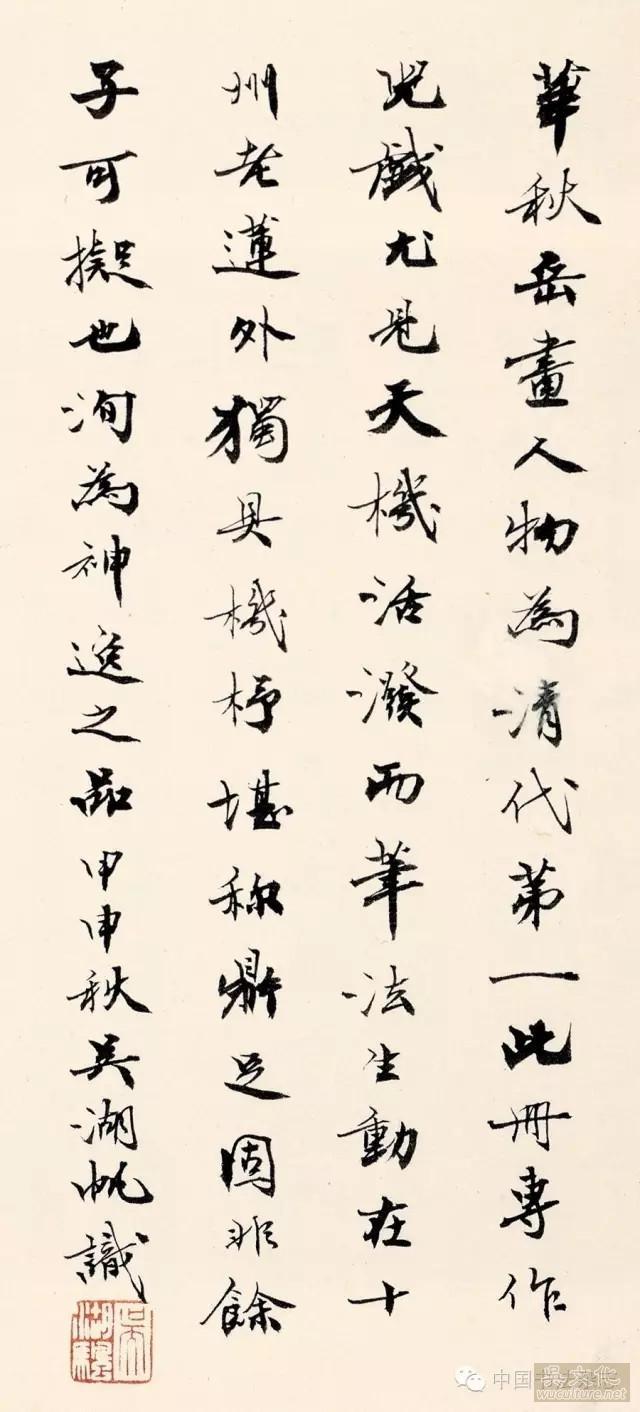 華秋岳畫人物為清代第一此冊專作
兒戲尤見天機活潑而筆法生動在十
州老蓮外獨具機杼堪稱鼎足固非餘
子可擬也洵為神逸之品甲申秋吳湖帆識
吳湖驂
中国书
吳文化
wuculture.net